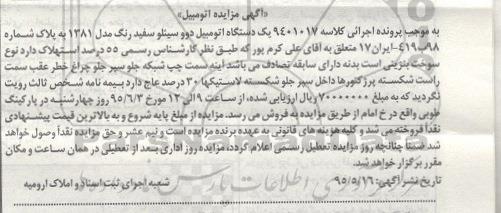 «آگهی مزایده اتومبیل»
به موجب پرونده اجرائی کلاسه ۹۴۰۱۰۱۷ یک دستگاه اتومبیل دوو سیئلو سفید رنگ مدل ۱۳۸۱ به پلاک شماره
۹۸ب۴۱۹-ایران۱۷ متعلق به آقای علی کرم پور که طبق نظر کارشناس رسمی ۵۵ درصد استهلاک دارد نوع
سوخت بنزینی است بدنه دارای سابقه تصادف می باشد آینه سمت چپ شبکه جلو سپر جلو چراغ خطر عقب سمت
راست شکسته پرژکتورها داخل سپر جلو شکسته لاستیکها ۳۰ درصد عاج دارد بیمه نامه شخص ثالث رویت
نگردید که به مبلغ ۷۰۰۰۰۰۰۰ ریال ارزیابی شده، از ساعت ۹ الی ۱۲ مورخ ۹۵/۶/۳ روز چهارشنبه در پارکینگ
طوبی واقع در خ امام از طریق مزایده به فروش می رسد. مزایده از مبلغ پایه شروع و به بالاترین قیمت پیشنهادی
نقداً فروخته می شد و کلیه هزینه های قانونی به عهده برنده مزایده است و نیم عشر و حق مزایده نقداً وصول خواهد
شد ضمناً چنانچه روز مزایده تعطیل رسمی اعلام گردد، مزایده روز اداری بعد از تعطیلی در همان ساعت و مکان
مقرر برگزار خواهد شد.
تاریخ نشر آگهی: ۹۵/۵/۱۶
شعبه اجرای ثبت اسناد و املاک ارومیه